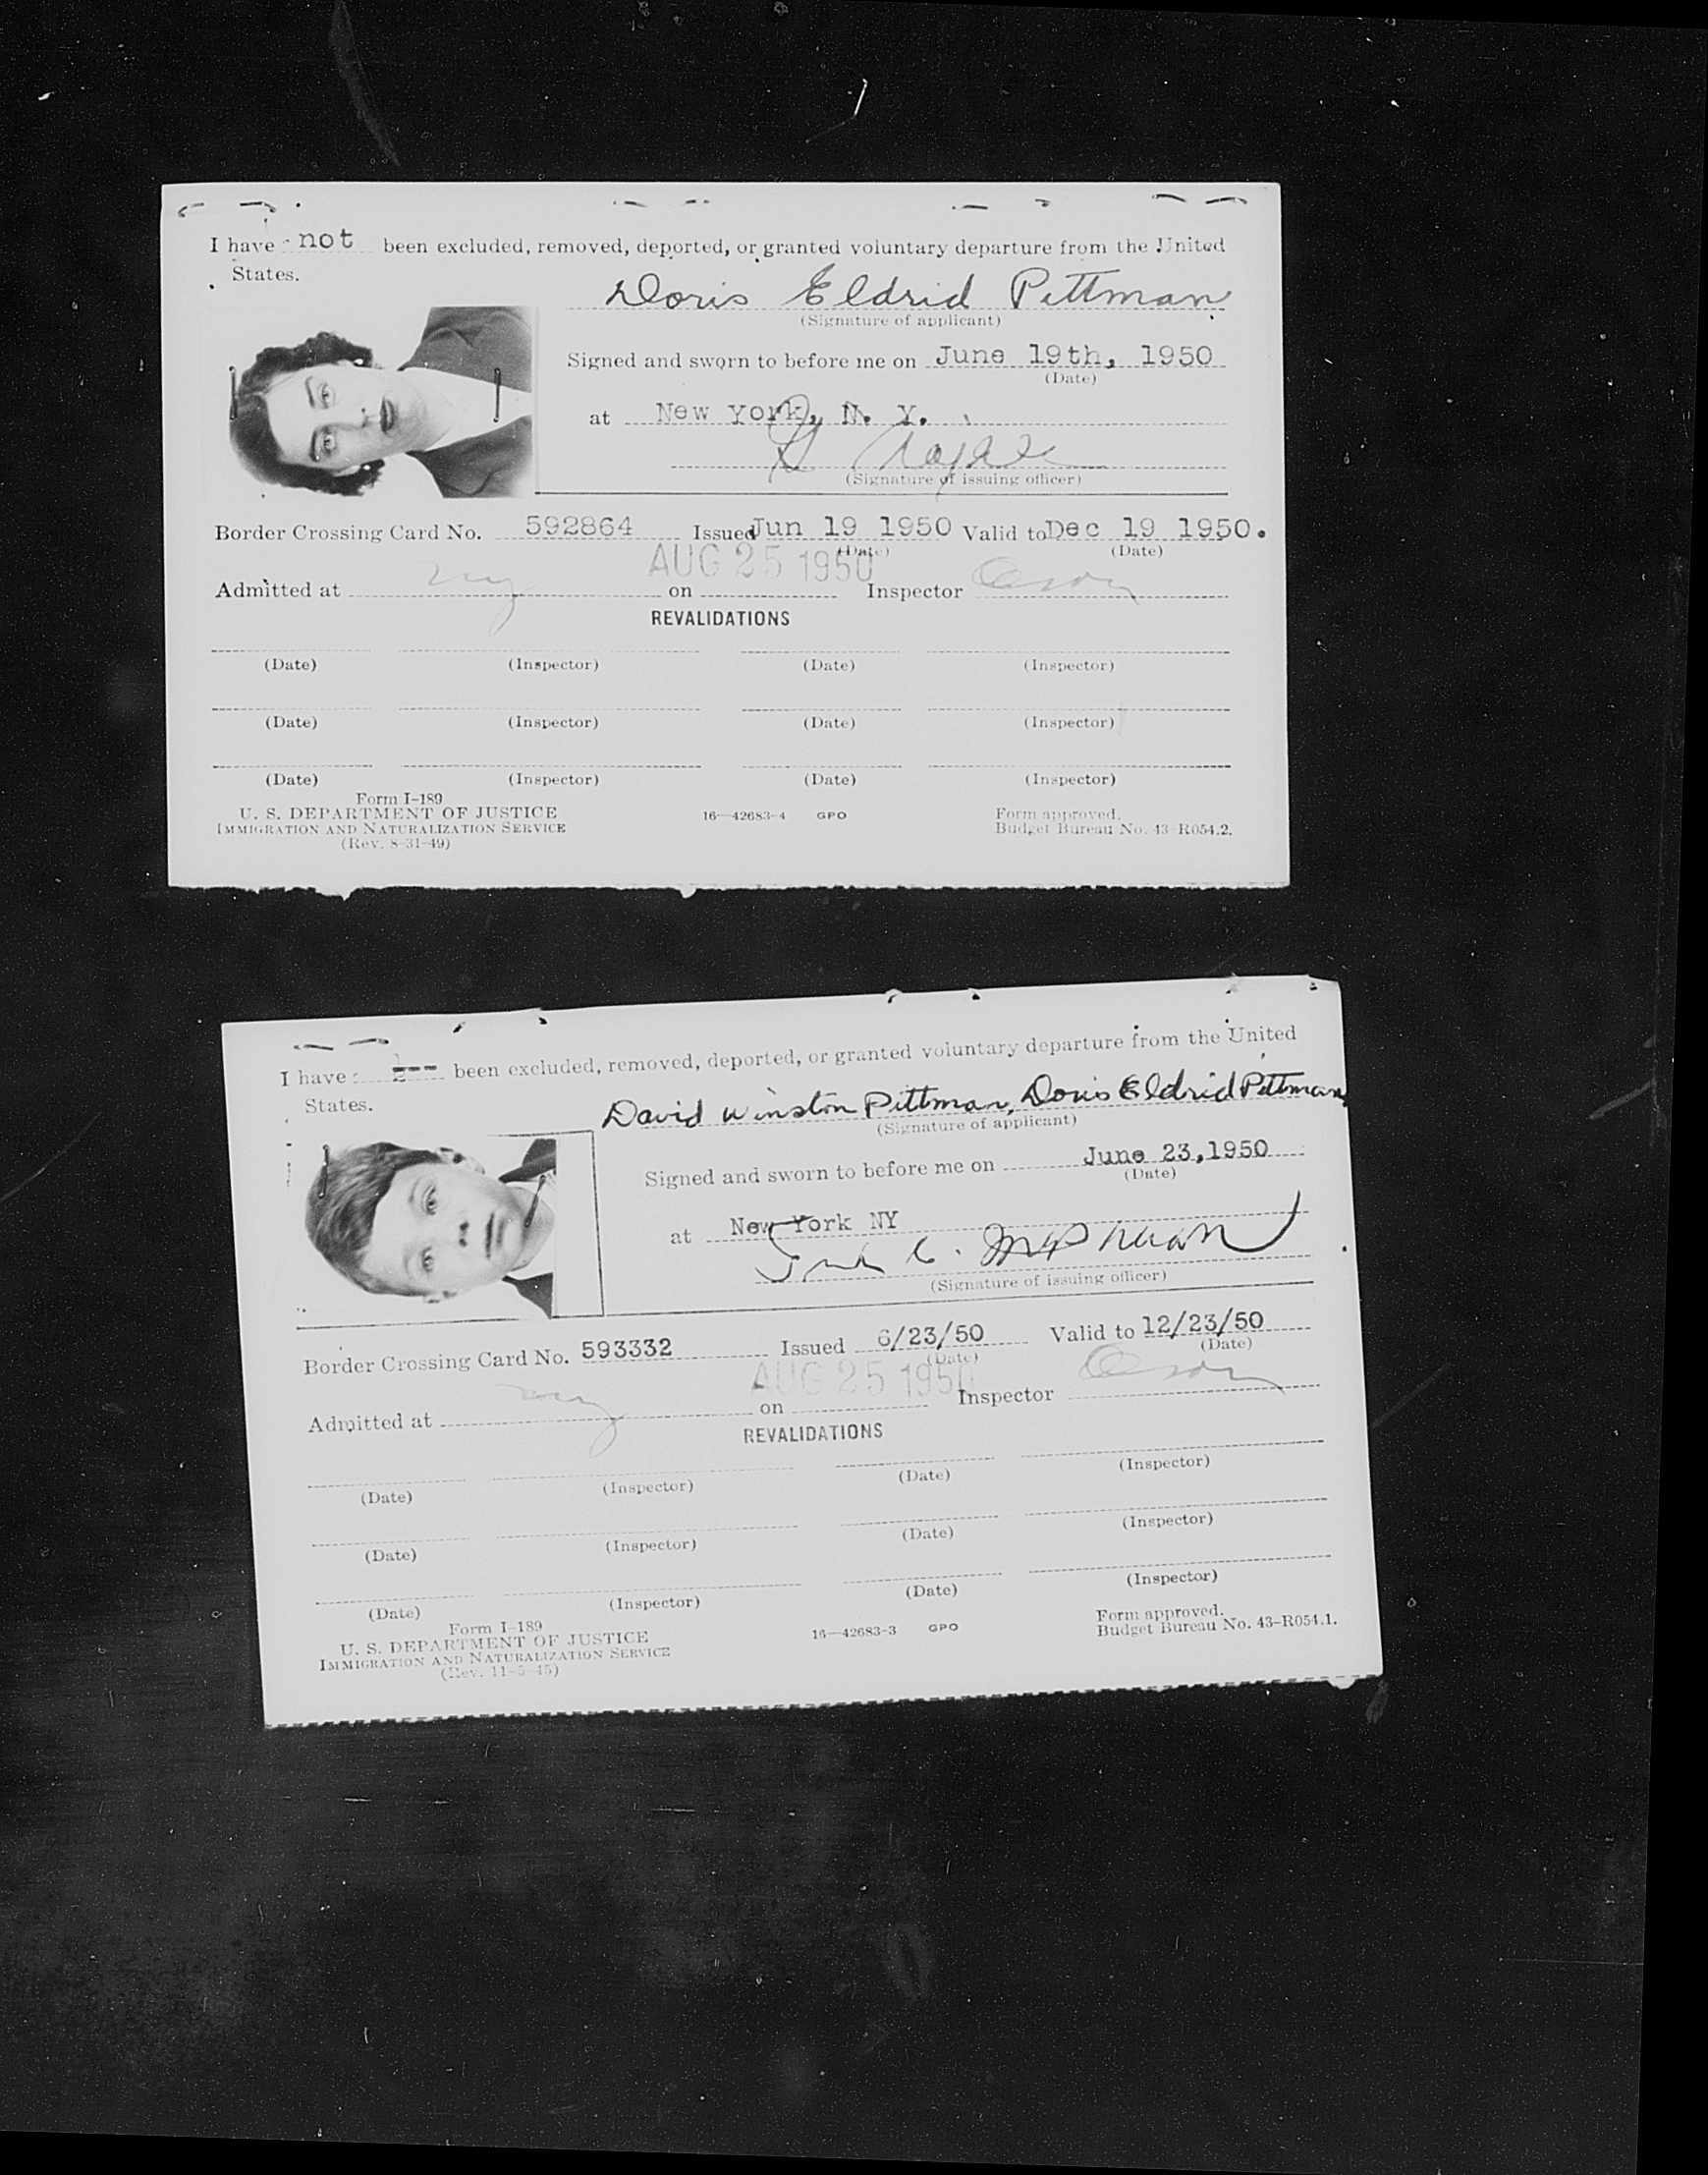 I have not been excluded, removed, deported, or granted voluntary departure from the United
States.
Doris Eldrid Pittman
(Signature of applicant)
Signed and sworn to before me on June 19th, 1950
(Date)
at New York, N. Y.
(Signature of issuing officer)
Border Crossing Card No. 592864 Issued Jun 19 1950 Valid to Dec 19 1950.
(Date) (Date)
AUG 25 1950
Admitted at on Inspector
REVALIDATIONS
(Date) (Inspector) (Date) (Inspector)
(Date) (Inspector) (Date) (Inspector)
(Date) (Inspector) (Date) (Inspector)
Form I-189
U. S. DEPARTMENT OF JUSTICE 16—42683-4 GPO Form approved.
IMMIGRATION AND NATURALIZATION SERVICE Budget Bureau No. 43-R054.2.
(Rev. 8-31-49)
I have been excluded, removed, deported, or granted voluntary departure from the United
States.
David Winston Pittman, Doris Eldrid Pittman
(Signature of applicant)
Signed and sworn to before me on June 23,1950
(Date)
at New York NY
(Signature of issuing officer)
Border Crossing Card No. 593332 Issued 6/23/50 Valid to 12/23/50
(Date) (Date)
AUG 25 1950
Admitted at on Inspector
REVALIDATIONS
(Date) (Inspector) (Date) (Inspector)
(Date) (Inspector) (Date) (Inspector)
(Date) (Inspector) (Date) (Inspector)
Form I-189
U. S. DEPARTMENT OF JUSTICE 16—42683-3 GPO Form approved.
IMMIGRATION AND NATURALIZATION SERVICE Budget Bureau No. 43-R054.1.
(Rev. 11-5-45)